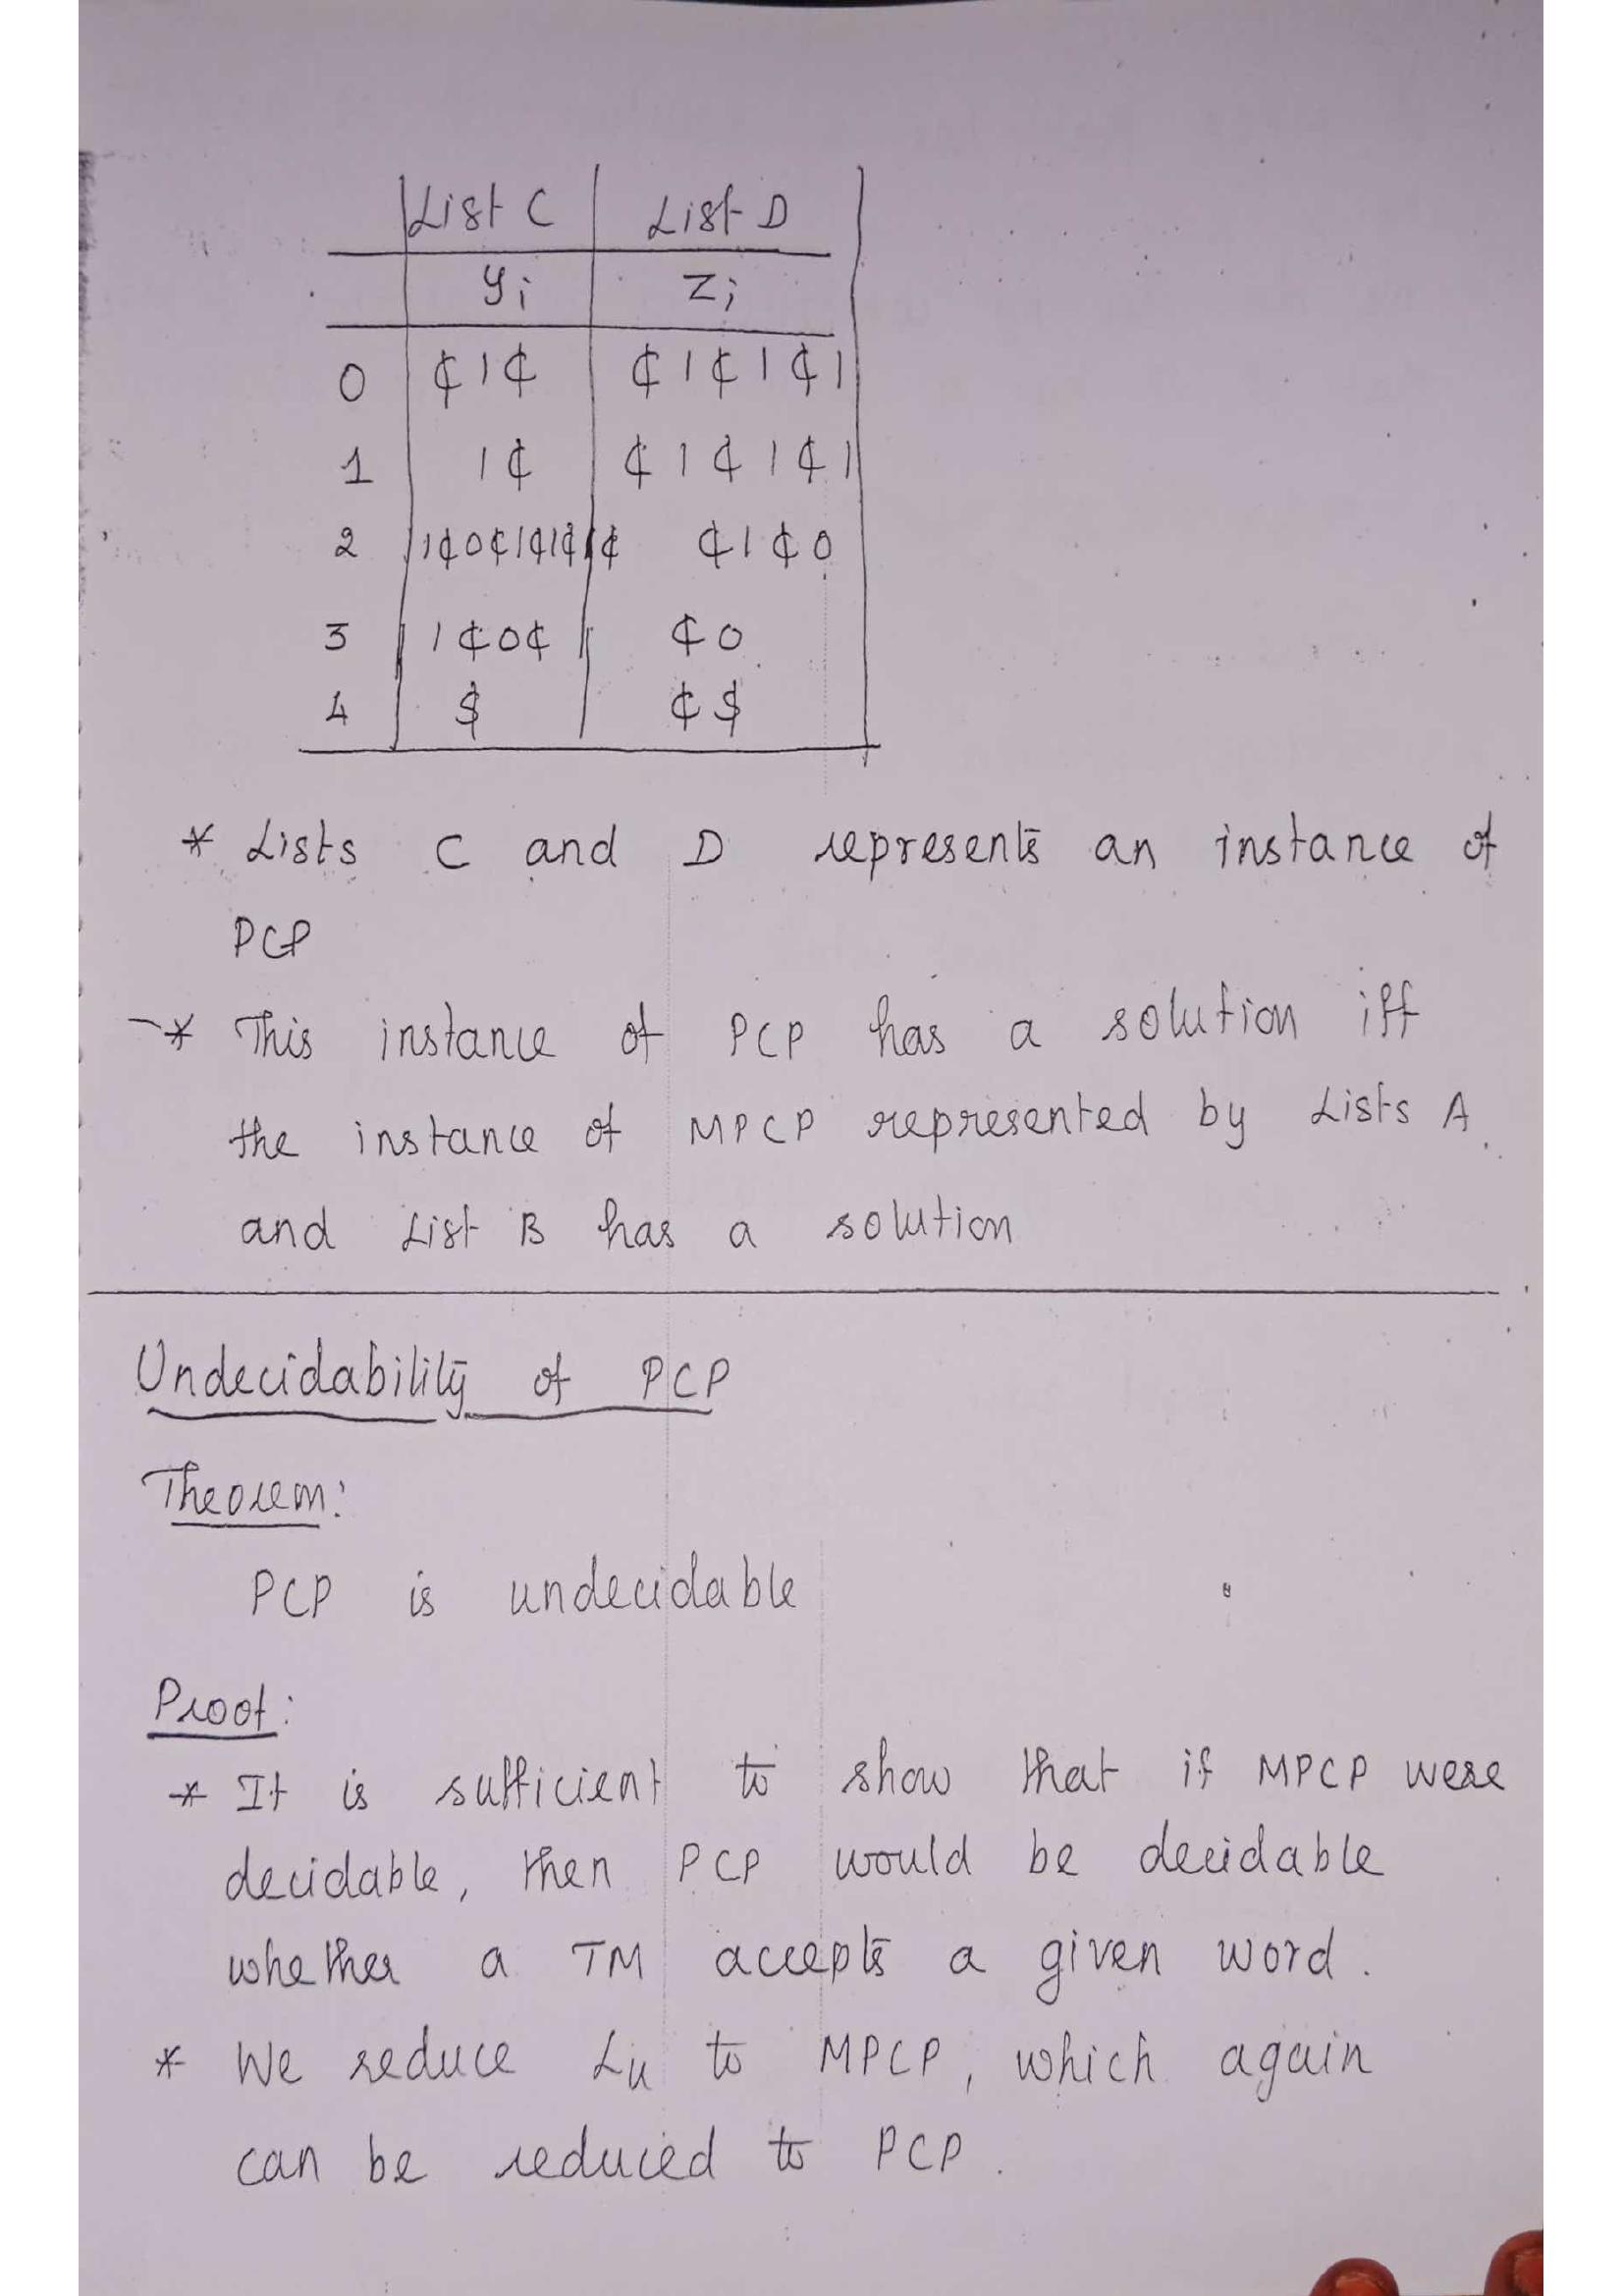 List C List D
yi zi
0 ¢1¢ ¢1¢1¢1
1 1¢ ¢1¢1¢1
2 1¢0¢1¢1¢1¢ ¢1¢0
3 1¢0¢ ¢0
4 $ ¢$
* Lists C and D represents an instance of
PCP
* This instance of PCP has a solution iff
the instance of MPCP represented by Lists A
and List B has a solution
Undecidability of PCP
Theorem:
PCP is undecidable
Proof:
* It is sufficient to show that if MPCP were
decidable, then PCP would be decidable
whether a TM accepts a given word.
* We reduce Lu to MPCP, which again
can be reduced to PCP.